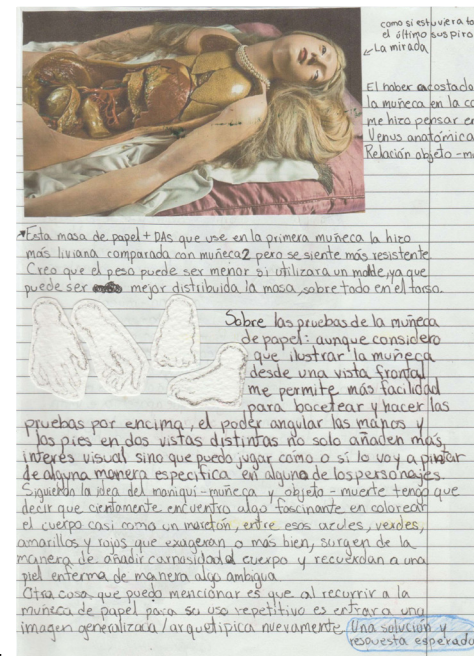 como si estuviera to
el último suspiro
La mirada
El haber acostado
la muñeca en la ca
me hizo pensar en
Venus anatómica
Relación objeto-m
Esta masa de papel + DAs que use en la primera muñeca la hizo
más liviana comparada con muñeca2 pero se siente más resistente
Creo que el peso puede ser menor si utilizara un molde, ya que
puede ser mejor distribuida la masa, sobre todo en el torso.
Sobre las pruebas de la muñeca
de papel: aunque considero
que ilustrar la muñeca
desde una vista frontal
me permite más facilidad
para bocetear y hacer las
pruebas por encima, el poder angular las manos y
los pies en dos vistas distintas no solo añaden más
interés visual sino que puedo jugar como o si lo voy a pintar
de alguna manera específica en alguno de los personajes
Siguiendo la idea del maniquí-muñeca y objeto-muerte tengo que
decir que ciertamente encuentro algo fascinante en colorear
el cuerpo casi como un moretón, entre esos azules, verdes,
amarillos y rojos que exageran o más bien, surgen de la
manera de añadir carnosidad al cuerpo y recuerdan a una
piel enferma de manera algo ambigua.
Otra cosa que puedo mencionar es que al recurrir a la
muñeca de papel para su uso repetitivo es entrar a una
imagen generalizada/arquetípica nuevamente. Una solución y
respuesta esperada